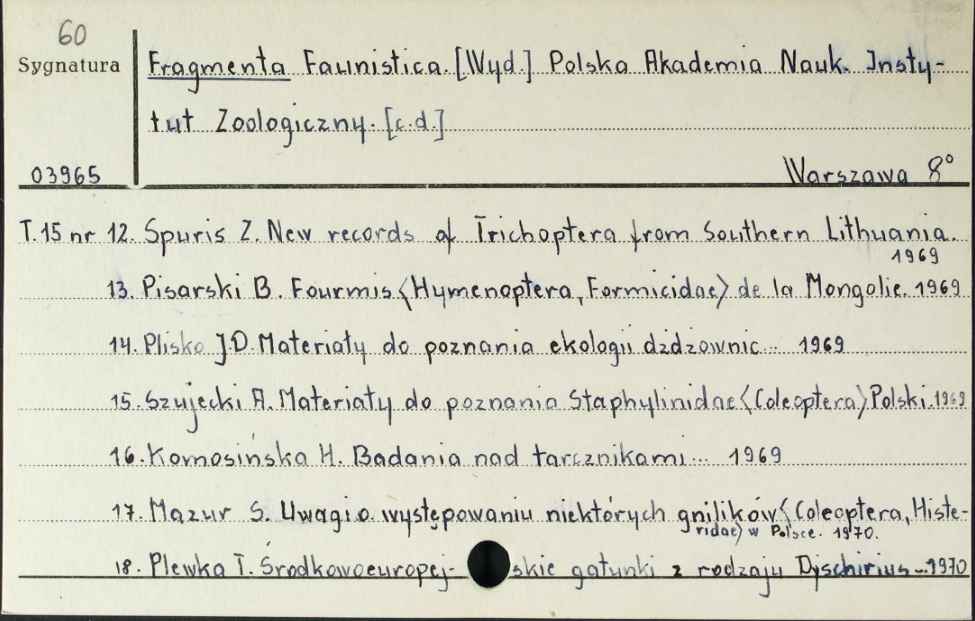 60
Sygnatura
Fragmenta Faunistica. [Wyd.] Polska Akademia Nauk. Insty-
tut Zoologiczny. [c.d.]
03965
Warszawa 8°
T.15 nr 12. Spuris Z. New records of Trichoptera from Southern Lithuania.
1969
13. Pisarski B. Fourmis <Hymenoptera, Formicidae> de la Mongolie. 1969
14. Plisko J.D. Materiały do poznania ekologii dżdżownic... 1969
15. Szujecki A. Materiały do poznania Staphylinidae <Coleoptera> Polski. 1969
16. Komosińska H. Badania nad tarcznikami... 1969
17. Mazur S. Uwagi o występowaniu niektórych gnilików <Coleoptera, Histe-
ridae> w Polsce. 1970.
18. Plewka T. Środkowoeuropej- skie gatunki z rodzaju Dyschirius... 1970